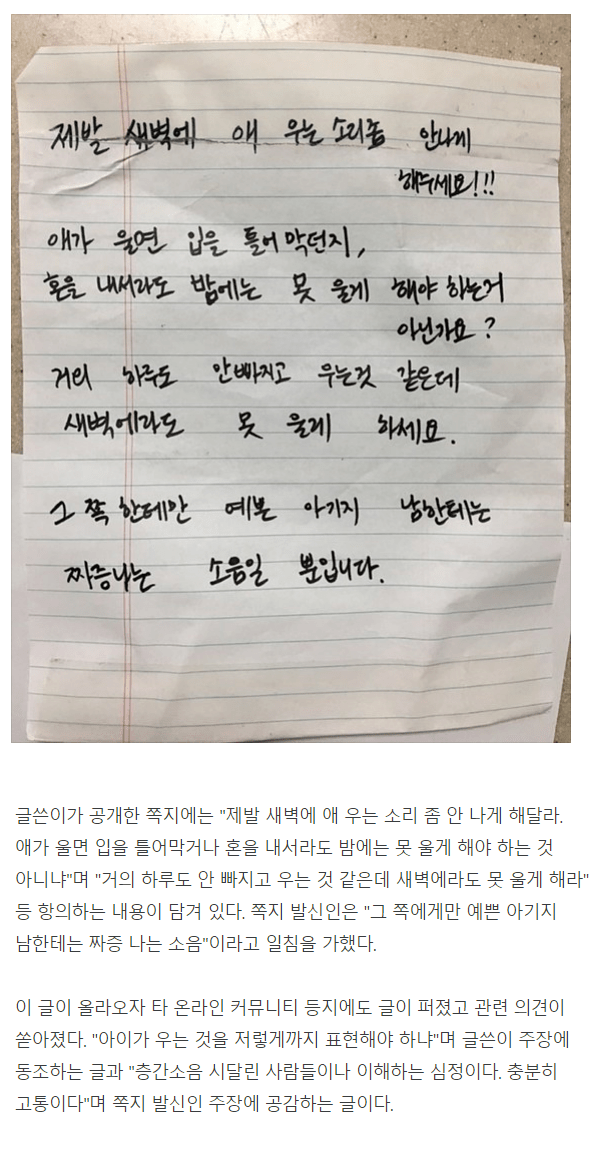 제발 새벽에 애 우는 소리좀 안나게
해주세요!!!
애가 울면 입을 틀어 막던지,
혼을 내서라도 밤에는 못 울게 해야 하는거
아닌가요?
거의 하루도 안빠지고 우는것 같은데
새벽에라도 못 울게 하세요.
그 쪽한테만 예쁜 아기지 남한테는
짜증나는 소음일 뿐입니다.
글쓴이가 공개한 쪽지에는 "제발 새벽에 애 우는 소리 좀 안 나게 해달라.
애가 울면 입을 틀어막거나 혼을 내서라도 밤에는 못 울게 해야 하는 것
아니냐"며 "거의 하루도 안 빠지고 우는 것 같은데 새벽에라도 못 울게 해라"
등 항의하는 내용이 담겨 있다. 쪽지 발신인은 "그 쪽에게만 예쁜 아기지
남한테는 짜증 나는 소음"이라고 일침을 가했다.
이 글이 올라오자 타 온라인 커뮤니티 등지에도 글이 퍼졌고 관련 의견이
쏟아졌다. "아이가 우는 것을 저렇게까지 표현해야 하냐"며 글쓴이 주장에
동조하는 글과 "층간소음 시달린 사람들이나 이해하는 심정이다. 충분히
고통이다"며 쪽지 발신인 주장에 공감하는 글이다.